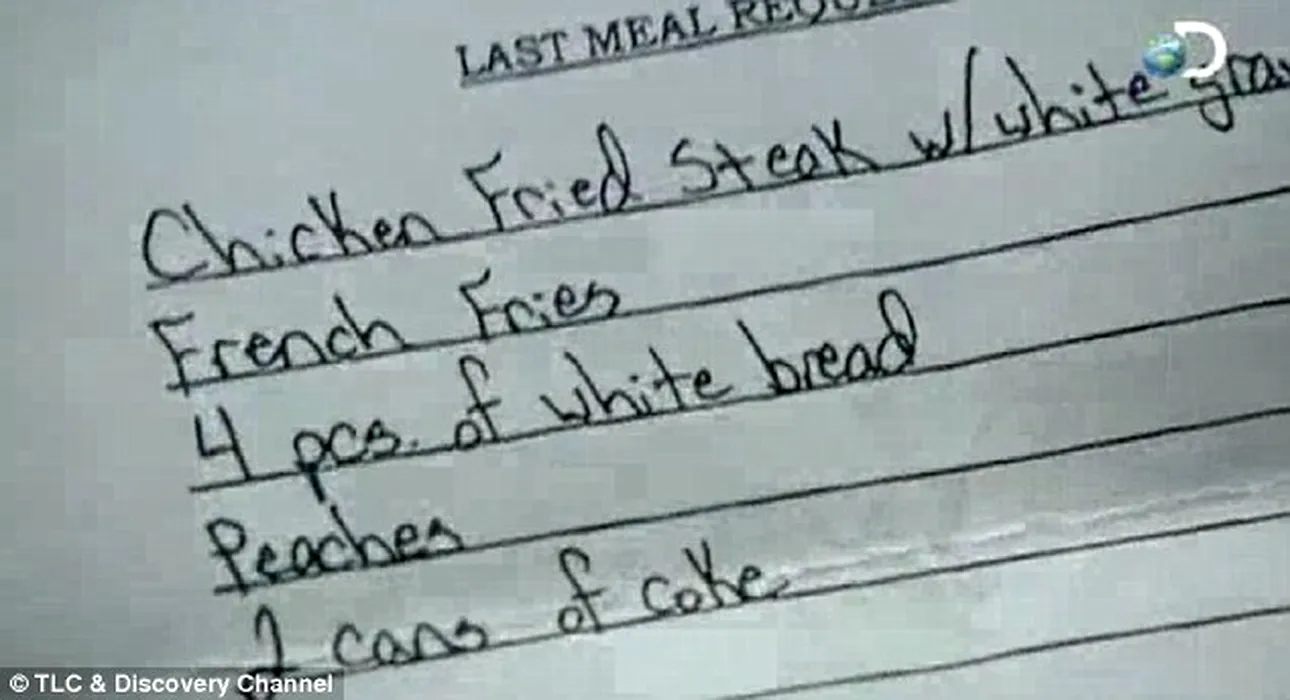 LAST MEAL
Chicken Fried Steak w/white
French Fries
4 pcs. of white bread
Peaches
2 cans of coke
© TLC & Discovery Channel